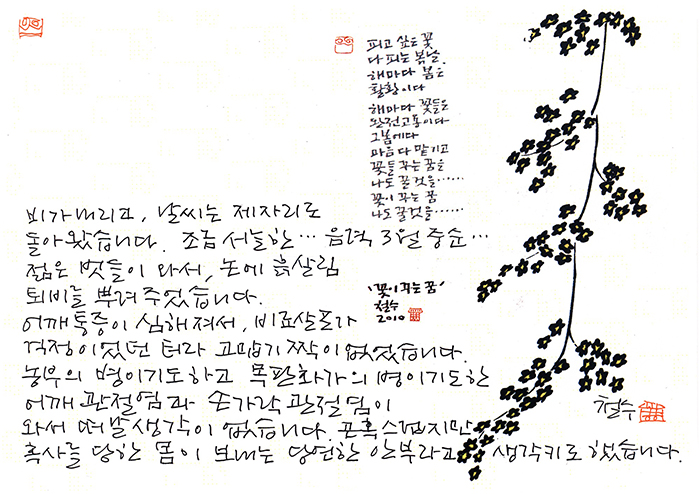 피고 싶은 꽃
다 피는 봄날.
해마다 봄은
활황이다
해마다 꽃들은
완전고용이다
그봄에다
마음 다 맡기고
꽃들 꾸는 꿈을
나도 꿀것을……
꽃이 꾸는 꿈
나도 꿀것을……
'꽃이 꾸는 꿈'
철수
2010
비가내리고, 날씨는 제자리로
돌아왔습니다. 조금 서늘한… 음력 3월 중순…
젊은 벗들이 와서, 논에 흙살림
퇴비를 뿌려주었습니다.
어깨통증이 심해져서, 비료살포가
걱정이었던 터라 고맙기 짝이없었습니다.
농부의 병이기도하고 목판화가의 병이기도한
어깨 관절염과 손가락 관절염이
와서 떠날 생각이 없습니다. 곤혹스럽지만
혹사를 당한 몸이 보내는 당연한 안부라고 생각키로 했습니다.
철수